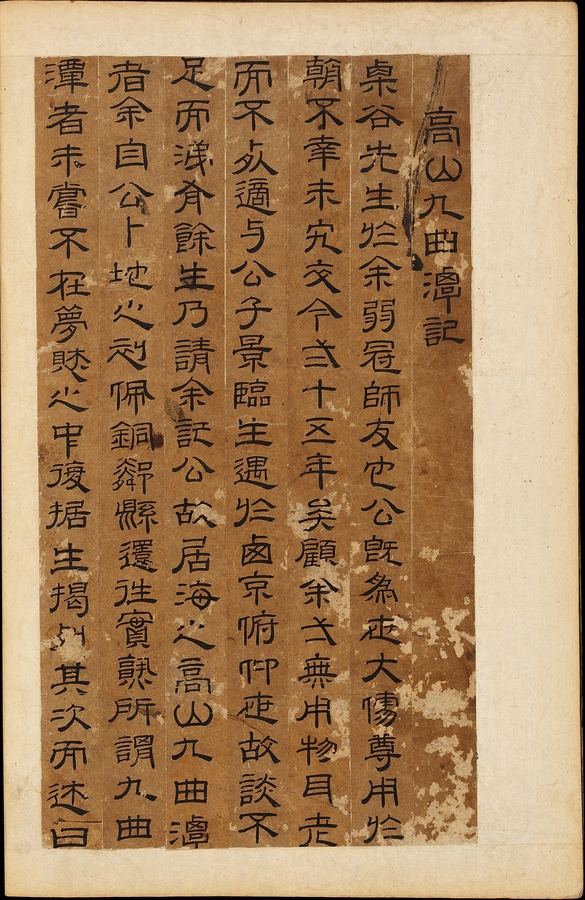 高山九曲潭記
栗谷先生於余弱冠師友也公既爲世大儒尊用於
朝不幸未究交今弍十五年矣顧余弋無用物目老
而不死適与公子景臨生遇於西京俯仰世故談不
足而涕有餘生乃請余記公故居海之高山九曲潭
者余自公卜地之初佩銅鄰縣還往實熟所謂九曲
潭者未嘗不在夢眛之中後据生揭列其次而述曰